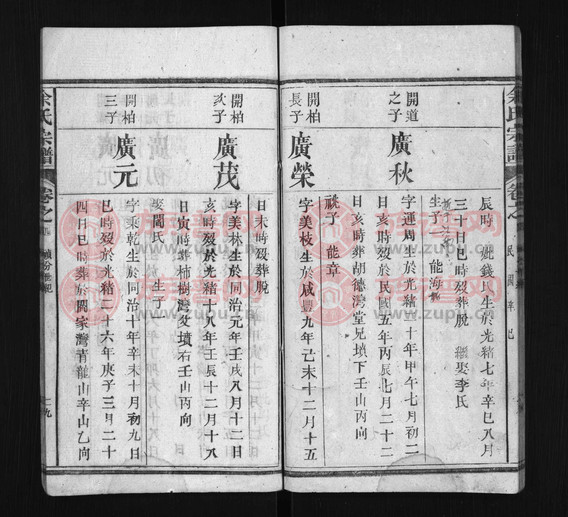 余氏宗譜
卷之
民國辛巳
辰時 娶錢氏生於光緒七年辛巳八月
三十日巳時歿葬脫 繼娶李氏
生子一 能海
開道之子
廣秋
字運周生於光緒二十年甲午七月初二
日亥時歿於民國五年丙辰七月二十二
日亥時葬胡德灣堂兄墳下壬山丙向
祧子 能章
開柏長子
廣榮
字美枝生於咸豐九年己未十二月十五
日未時歿葬脫
開柏次子
廣茂
字美林生於同治元年壬戌八月十二日
亥時歿於光緒十八年壬辰十二月十八
日寅時葬柿樹灣父墳右壬山丙向
娶閻氏 生子
開柏三子
廣元
字乘乾生於同治十年辛未十月初九日
巳時歿於光緒二十六年庚子三月二十
四日巳時葬於閻家灣青龍山辛山乙向
余氏宗譜
卷之
七九
族譜網
www.zupu.cn
族譜網
www.zupu.cn